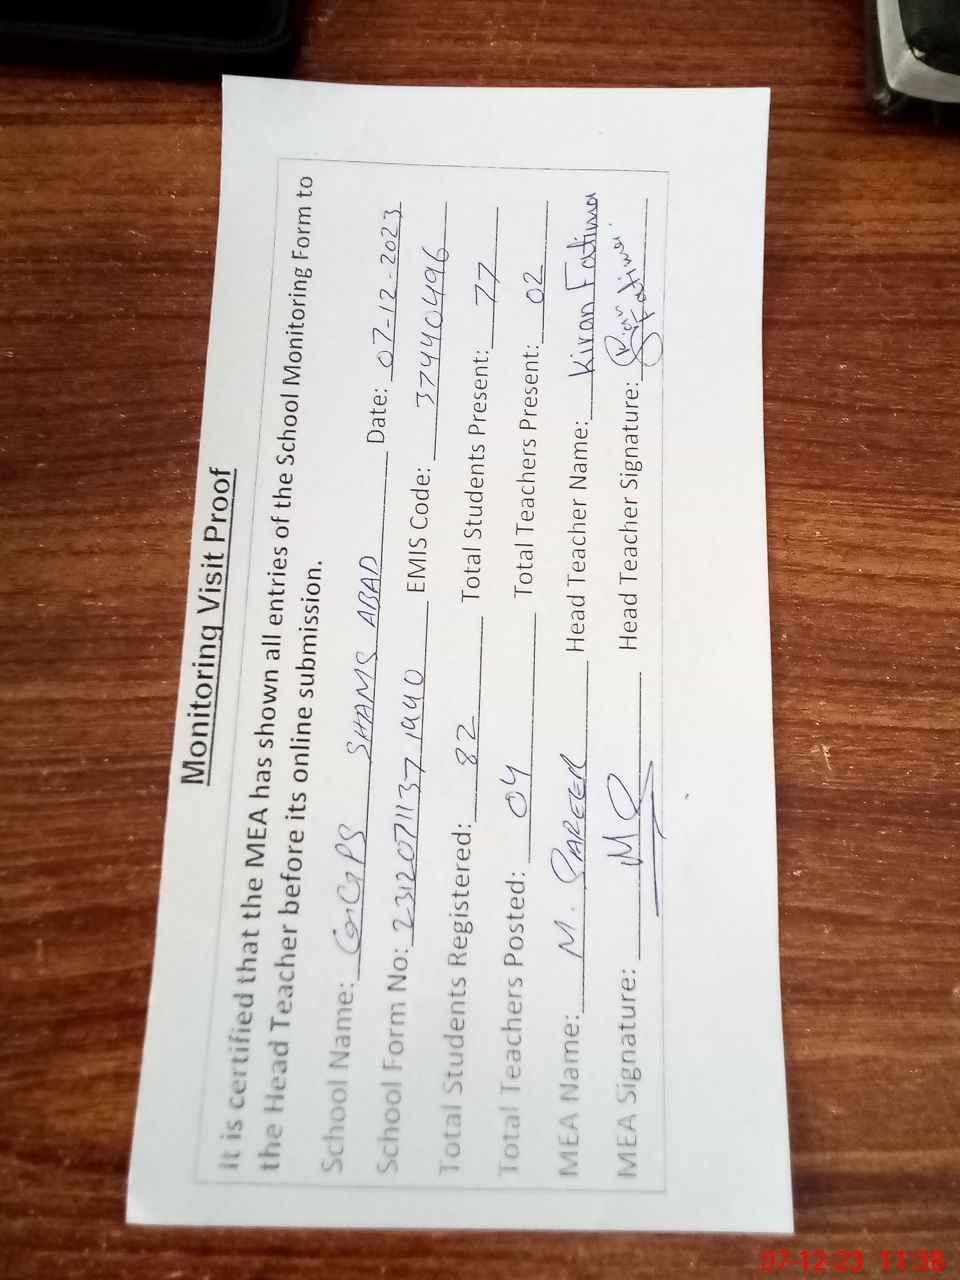 Monitoring Visit Proof
It is certified that the MEA has shown all entries of the School Monitoring Form to
the Head Teacher before its online submission.
School Name: GGPS SHAMS ABAD Date: 07-12-2023
School Form No: 23120711371940 EMIS Code: 37440496
Total Students Registered: 82 Total Students Present: 77
Total Teachers Posted: 04 Total Teachers Present: 02
MEA Name: M. Head Teacher Name: Kiran Fatima
MEA Signature: Head Teacher Signature: Fatima
07-12-23 11:38